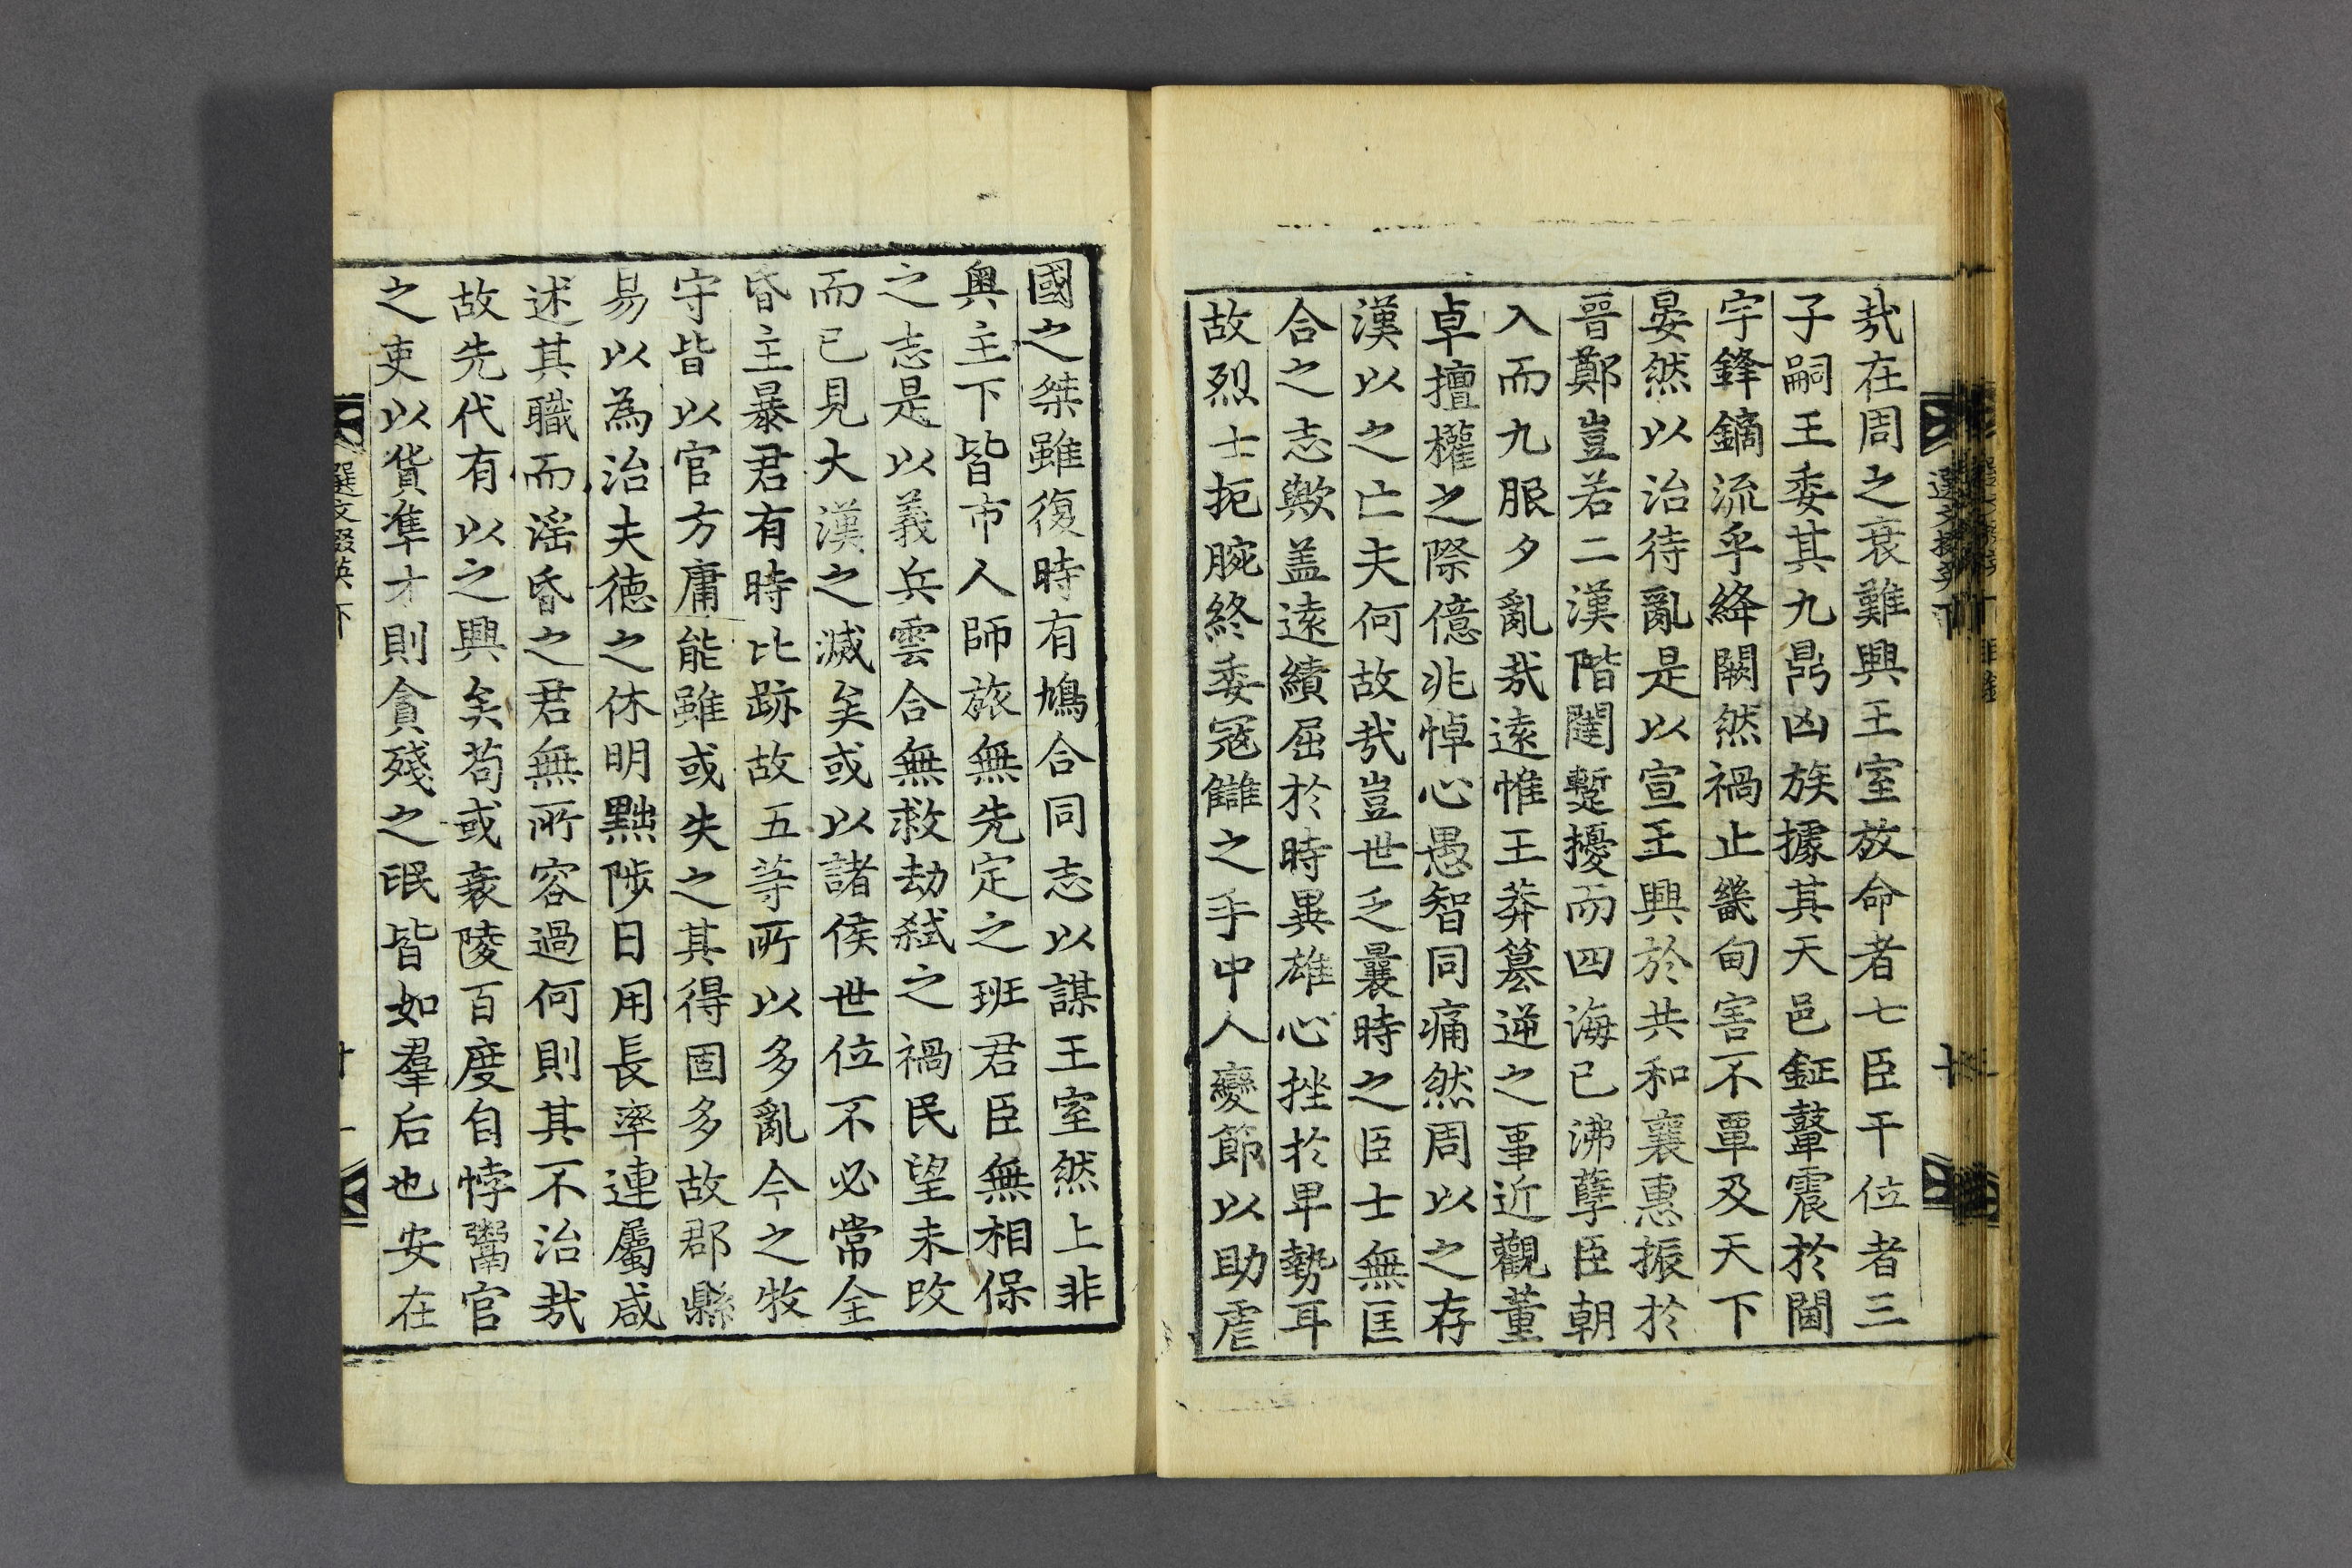 哉在周之衰難興王室放命者七臣干位者三
子嗣王委其九鼎凶族據其天邑鉦鼙震於閫
宇鋒鏑流乎絳闕然禍止畿甸害不覃及天下
晏然以治待亂是以宣王興於共和襄惠振於
晉鄭豈若二漢階闥蹔擾而四海已沸孽臣朝
入而九服夕亂哉遠惟王莽簒逆之事近觀董
卓擅權之際億兆悼心愚智同痛然周以之存
漢以之亡夫何故哉豈世乏曩時之臣士無匡
合之志歟盖遠績屈於時異雄心挫於卑勢耳
故烈士扼腕終委冦讎之手中人變節以助虐
國之桀雖復時有鳩合同志以謀王室然上非
奧主下皆市人師旅無先定之班君臣無相保
之志是以義兵雲合無救劫弑之禍民望未改
而已見大漢之滅矣或以諸侯世位不必常全
昏主暴君有時比跡故五等所以多亂今之牧
守皆以官方庸能雖或失之其得固多故郡縣
易以為治夫德之休明黜陟日用長率連屬咸
述其職而淫昏之君無所容過何則其不治哉
故先代有以之興矣苟或衰陵百度自悖鬻官
之吏以貨準才則貪殘之氓皆如羣后也安在
選文掇英下
十一